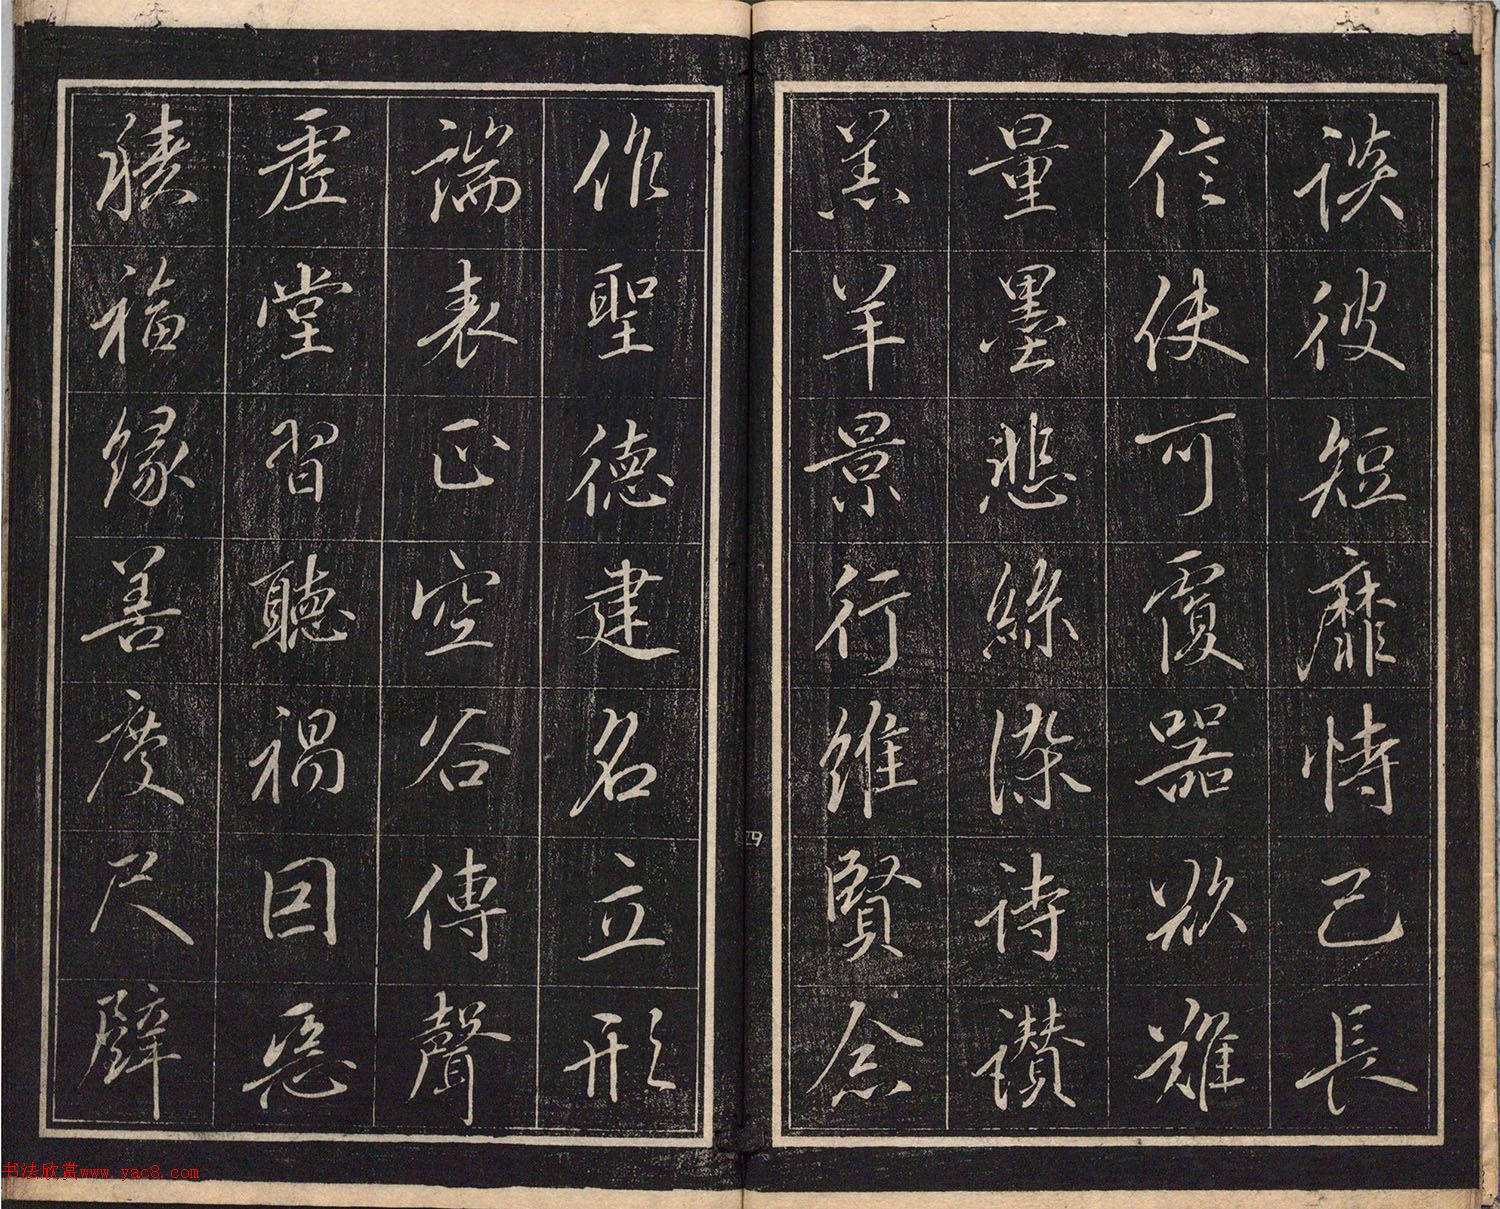 談彼短靡恃己長
信使可覆器欲難
量墨悲絲染詩讚
羔羊景行維賢念
作聖德建名立形
端表正空谷傳聲
虛堂習聽禍因惡
積福緣善慶尺璧
四
书法欣赏www.yac8.com